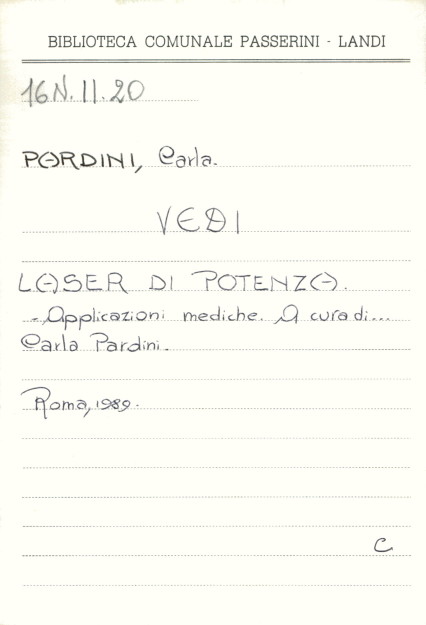 BIBLIOTECA COMUNALE PASSERINI - LANDI
16N.II.20
PARDINI, Carla.
VEDI
LASER DI POTENZA.
- Applicazioni mediche. A cura di...
Carla Pardini.
Roma, 1989.
C